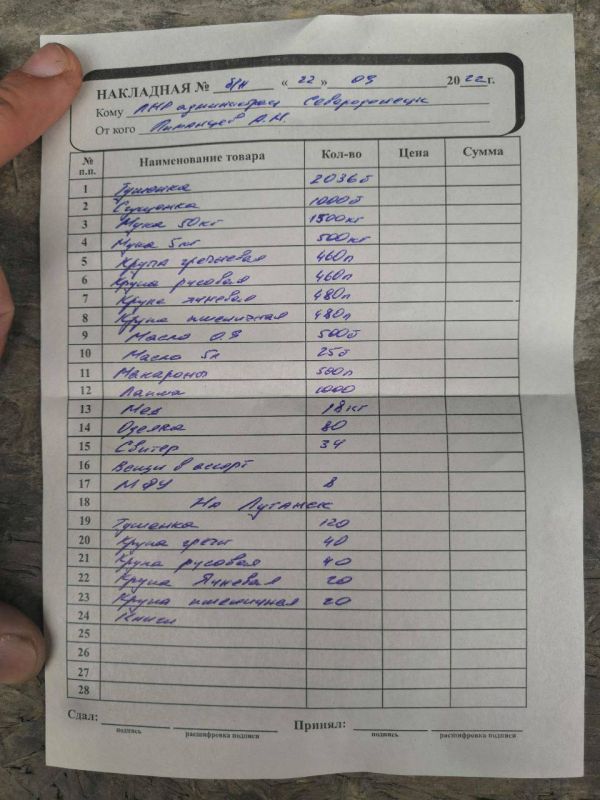 НАКЛАДНАЯ № б/н « 22 » 09 2022г.
Кому ЛНР администрац Северодонецк
От кого Лиманцев А.М.
№ п.п. Наименование товара Кол-во Цена Сумма
1 Тушенка 2036б
2 Сгущенка 1000б
3 Мука 50кг 1500кг
4 Мука 5кг 500кг
5 Крупа гречневая 460п
6 Крупа рисовая 460п
7 Крупа ячневая 480п
8 Крупа пшеничная 480п
9 Масло 0.9 500б
10 Масло 5л 25б
11 Макароны 500п
12 Лапша 1000
13 Мед 18кг
14 Одеяла 80
15 Свитер 34
16 Вещи в ассорт
17 МФУ 8
18 На Луганск
19 Тушенка 120
20 Крупа гречн 40
21 Крупа рисовая 40
22 Крупа Ячневая 20
23 Крупа пшеничная 20
24 Книги
25
26
27
28
Сдал: Принял:
подпись расшифровка подписи подпись расшифровка подписи